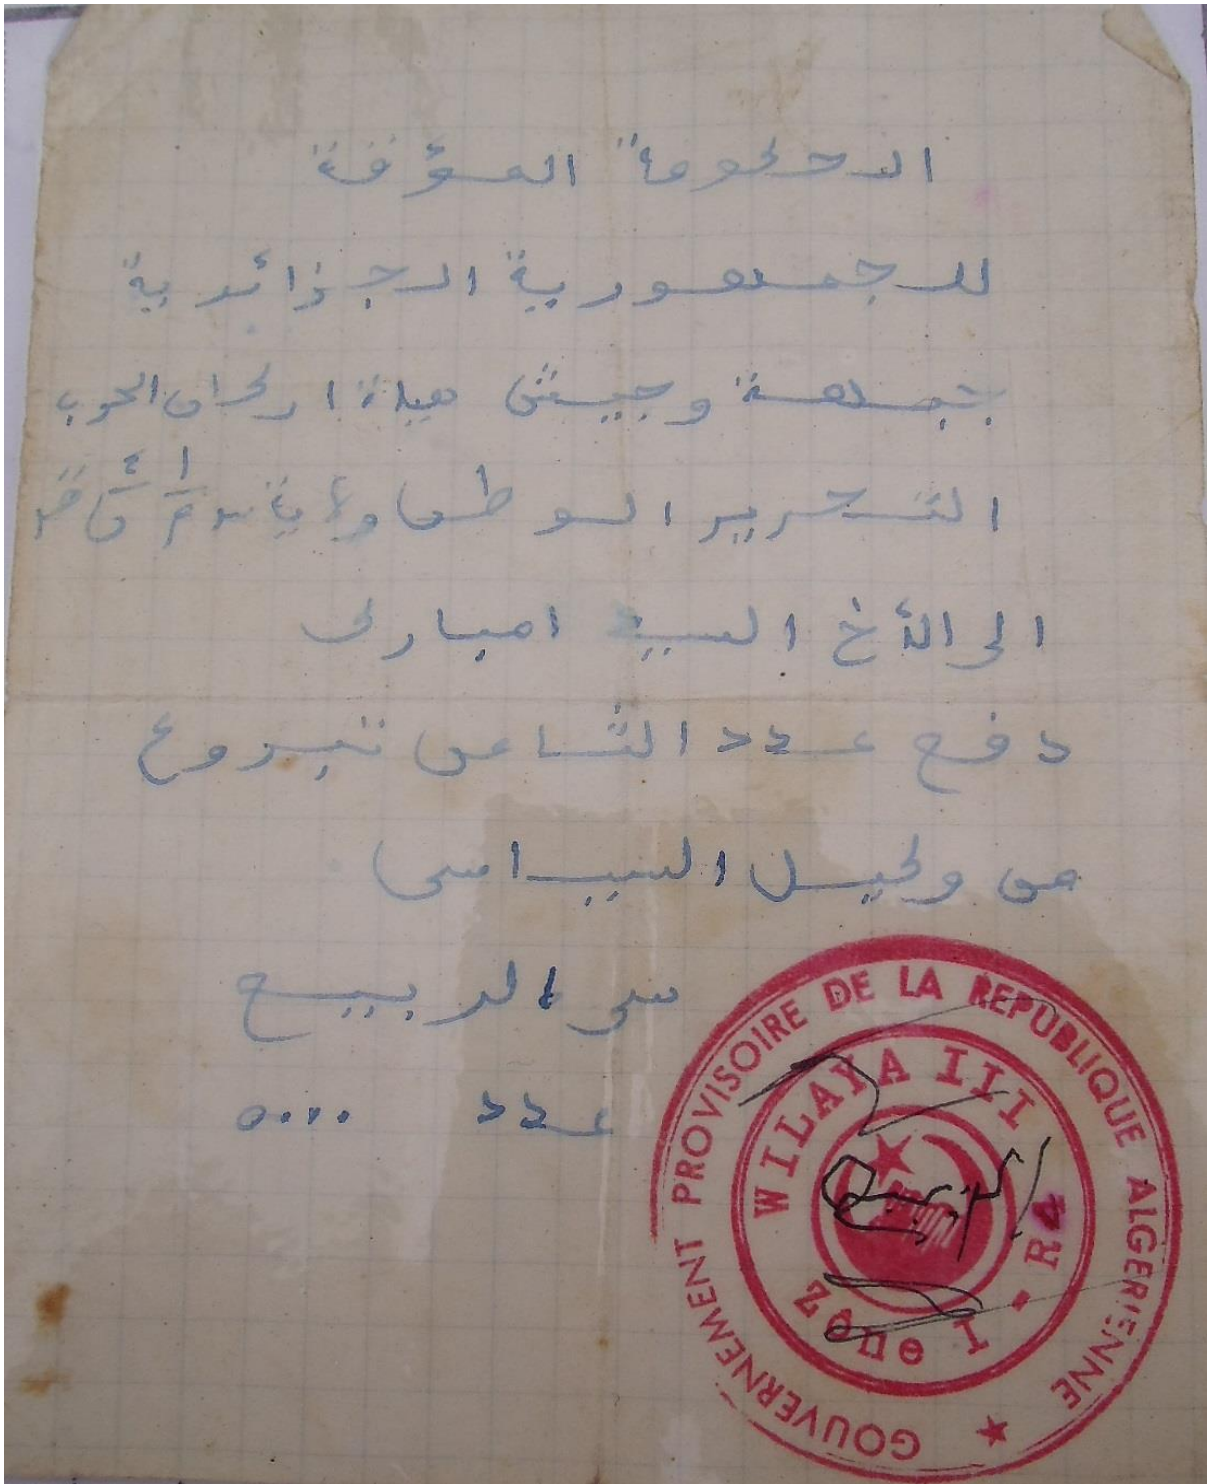 الحكومة المؤقة
للجمهورية الجزائرية
بجبهة وجيش هياة اركان الحرب
التحرير الوطن ولاية
الى الأخ السيد امبارك
دفع عدد الثامن تبروع
من وكيل السياسى
سى الربيع
عدد ٥٠٠٠
GOUVERNEMENT PROVISOIRE DE LA REPUBLIQUE ALGERIENNE
WILAYA III
Zone I • R4